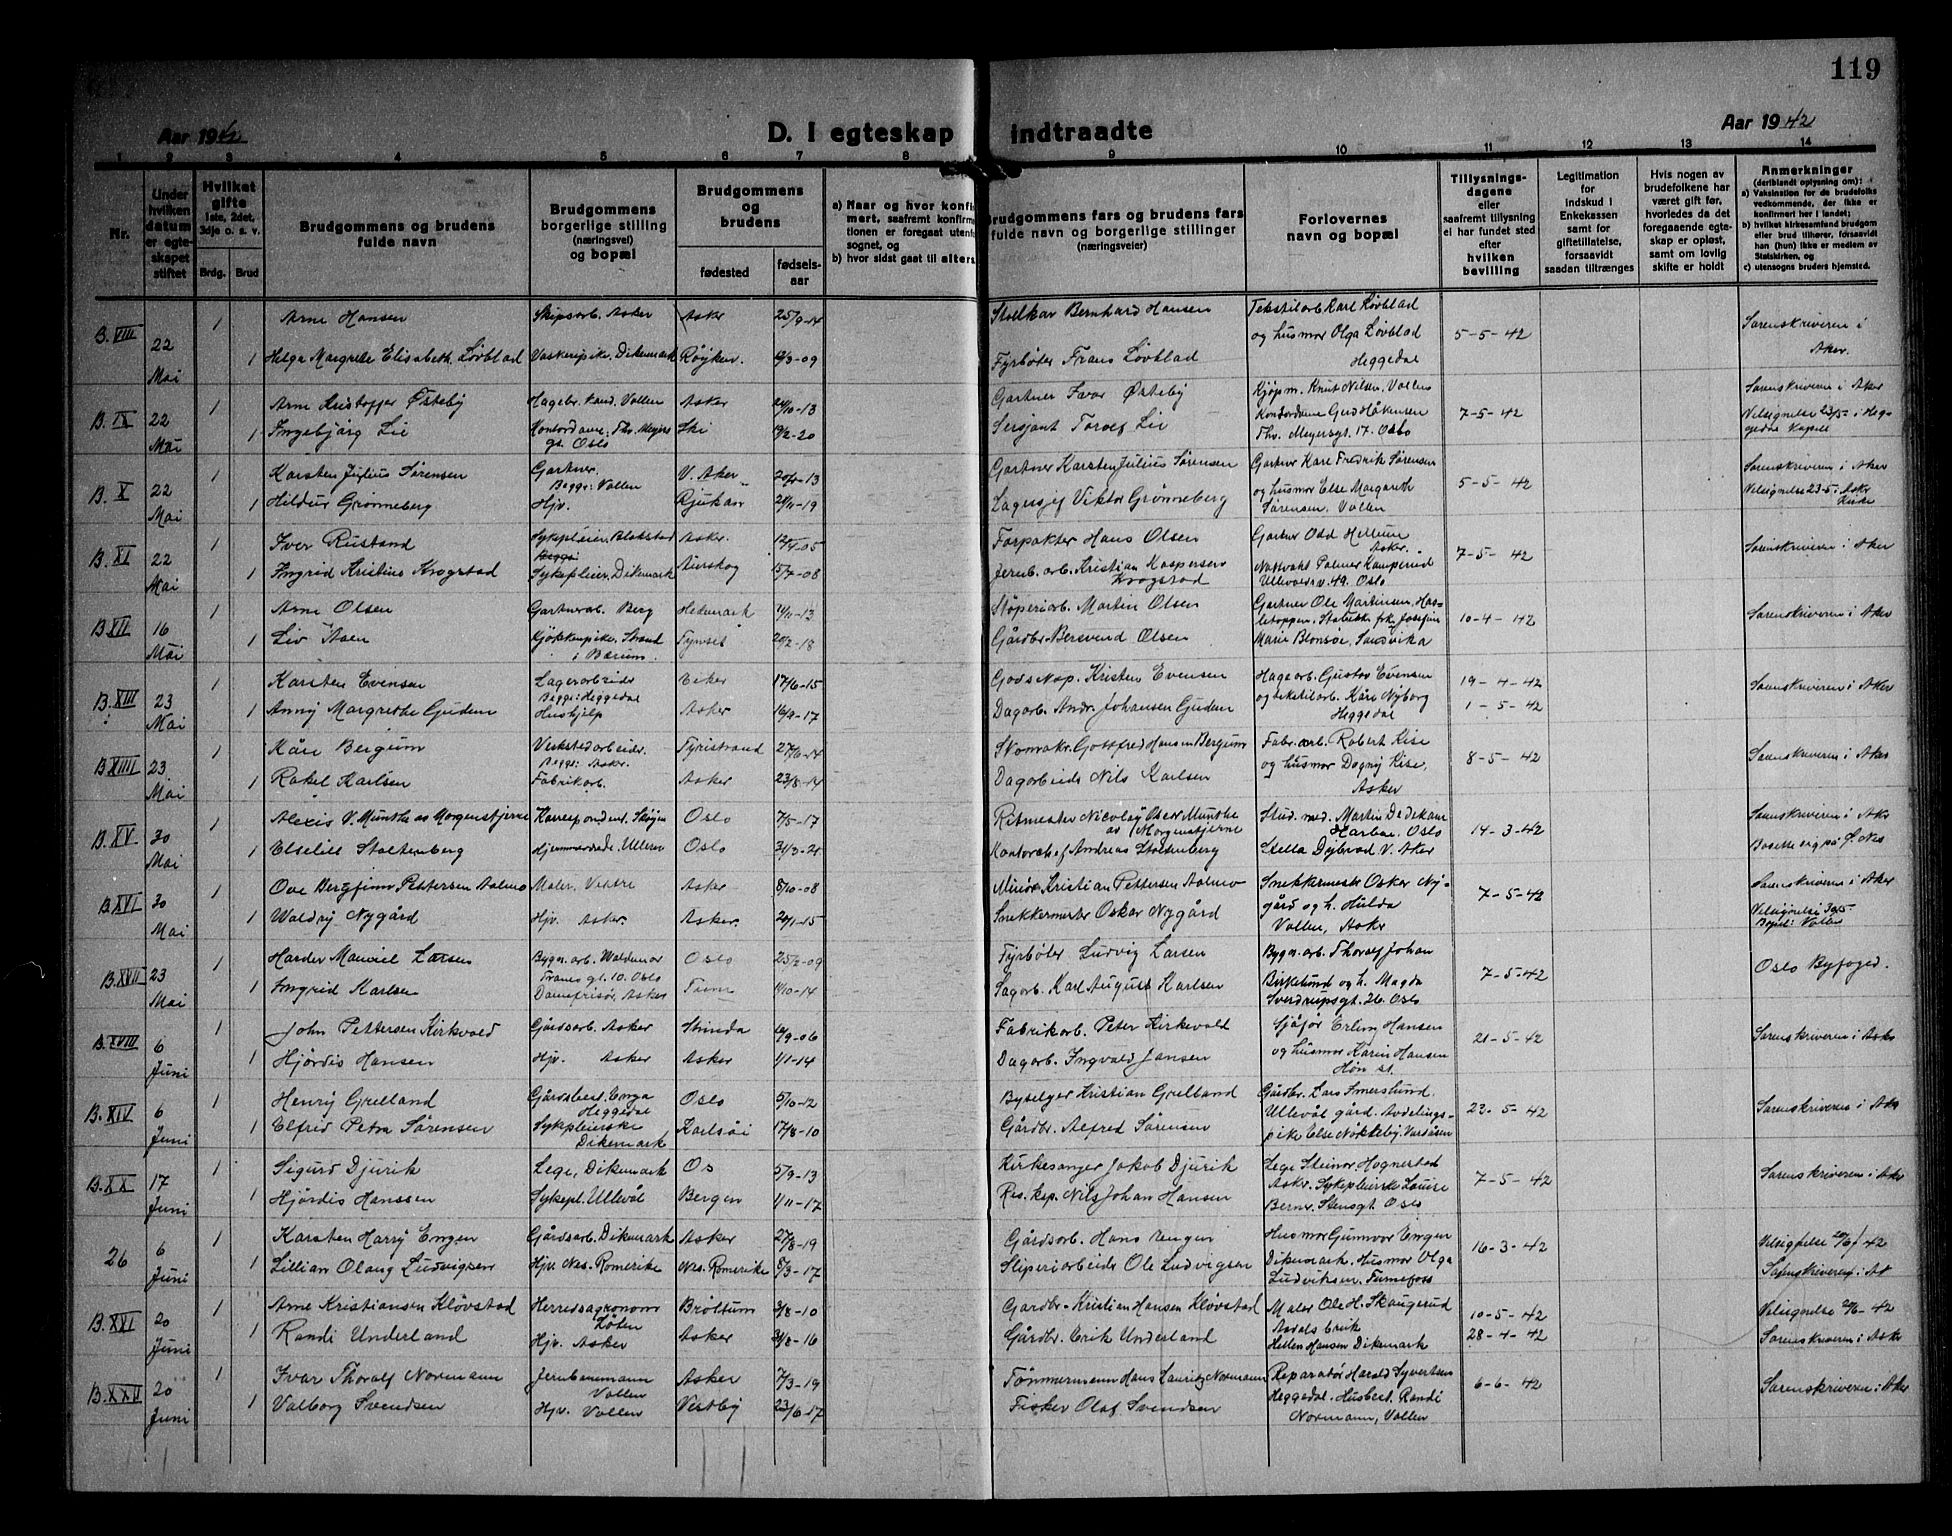 119
Aar 1942
D. I egteskap indtraadte
Aar 1942
1 2 3 4 5 6 7 8 9 10 11 12 13 14
Nr.
Under hvilken datum er egteskapet stiftet
Hvilket gifte 1ste, 2det, 3dje o. s. v.
Brdg. Brud
Brudgommens og brudens fulde navn
Brudgommens borgerlige stilling (næringsvei) og bopæl
Brudgommens og brudens
fødested
fødselsaar
a) Naar og hvor konfirmert, saafremt konfirmationen er foregaat utenfor sognet, og
b) hvor sidst gaat til alters.
Brudgommens fars og brudens fars fulde navn og borgerlige stillinger (næringsveier)
Forlovernes navn og bopæl
Tillysningsdagene eller saafremt tillysning ei har fundet sted efter hvilken bevilling
Legitimation for indskud i Enkekassen samt for giftetillatelse, forsaavidt saadan tiltrænges
Hvis nogen av brudefolkene har været gift før, hvorledes da det foregaaende egteskap er opløst, samt om lovlig skifte er holdt
Anmerkninger (deriblandt oplysning om):
a) Vaksination for de brudefolks vedkommende, der ikke er konfirmert her i landet;
b) hvilket kirkesamfund brudgom eller brud tilhører, forsaavidt han (hun) ikke er medlem av Statskirken, og
c) utensogns bruders hjemsted.
B. VIII 22 Mai 1 Arne Hansen Skipsarb. Asker Asker 25/9-14 Bernhard Hansen Tekstilarb. Karl Løvblad
og husmor Olga Løvblad Heggedal 5-5-42 Sorenskriveren i Aker.
1 Helga Margrete Elisabeth Løvblad Vaskeripike, Dikemark Røyken Fyrbøter Frans Løvblad
B. IX 22 Mai 1 Arne Kristoffer Østeby Hagebr. kand. Vollen Asker Gartner Ivar Østeby Kjøpm. Knut Nilsen, Vollen
Kontordame Gud Håkensen Thv. Meyersgt. 17. Oslo 7-5-42 Sorenskriveren i Aker
Velsignelse 23/5 i Heggedal Kapell
1 Ingebjørg Lie Kontordame, Thv. Meyers gt. Oslo Ski 19/2-20 Sersjant Torolf Lie
B. X 22 Mai 1 Karsten Julius Sørensen Gartner. Begge: Vollen V. Aker Gartner Karsten Julius Sørensen Gartner Kare Fredrik Sørensen
og husmor Else Margareth Sørensen, Vollen 5-5-42 Sorenskriveren i Aker
Velsignelse 23-5 i Asker Kirke
1 Hildur Grønneberg Hjv. Rjukan Viktor Grønneberg
B. XI 22 Mai 1 Iver Rustand Sykepleier, Blakstad Asker. Forpakter Hans Olsen Gartner Odd Hellum Asker.
Nattvakt Palmer Kamperud Ullevålsv. 49. Oslo 7-5-42 Sorenskriveren i Aker
1 Ingrid Kristine Krogstad Sykepleier, Dikemark Aurskog 15/7-08 Jernb. arb. Kristian Kaspersen Krogstad
B. XII 16 Mai 1 Arne Olsen Gartnerarb. Berg Hedemark Støperiarb. Martin Olsen Gartner Ole Martinsen,
Stabekk frk Josefine Marie Blonsøe, Sandvika 10-4-42 Sorenskriveren i Aker
1 Liv Aaen Kjøkkenpike, Strand i Bærum. Tynset Gårdbr. Bersvend Olsen
B. XIII 23 Mai 1 Karsten Evensen Lagerarbeider Begge: Heggedal Eiker 17/6-15 Kristen Evensen Hagearb. Gustav Evensen
og tekstilarb. Kåre Nyborg Heggedal 19-4-42
1-5-42 Sorenskriveren i Aker
1 Anny Margrethe Gudem Hushjelp Asker 16/9-17 Dagarb. Andr. Johansen Gudem
B. XIIII 23 Mai 1 Kåre Bergum Verkstedarbeider. Begge: Asker. Tyristrand Skomakr. Gottfred Hansen Bergum Fabr. arb. Robert Kise
og husmor Dagny Kise, Asker 8-5-42 Sorenskriveren i Aker
1 Rakel Karlsen Fabrikarb. Asker 23/8-14 Dagarbeider Nils Karlsen
B. XV 30 Mai 1 Alexis V. Munthe av Morgenstjerne Korrespondent. Oslo 7/5-17 Ritmester Nicolay Oscar Munthe av Morgenstjerne Stud. med. Martin Dedekam
Harboe. Oslo
Stella Dybwad V. Aker 14-3-42 Sorenskriveren i Aker
Bosette sig på Ø. Nes
1 Elselill Stoltenberg Oslo Andreas Stoltenberg
B. XVI 30 Mai 1 Ove Bergfinn Pettersen Aalmo Maler. Vestre Asker 8/10-08 Kristian Pettersen Aalmo Snekkermester Oskar Nygård og h. Hulda Vollen, Asker 7-5-42 Sorenskriveren i Aker
Velsignelse 30/5. Bopel: Vollen
1 Waldny Nygård Hjv. Asker. Asker. Snekkermester Oskar Nygård
B. XVII 23 Mai 1 Harder Manviel Larsen Bygn. arb. Waldemar Tranes gt. 10. Oslo Oslo Fyrbøter Ludvig Larsen Bygn. arb. Thoralf Johan
Birkelund og h. Magda Sverdrupsgt. 26. Oslo 7-5-42 Oslo Byfoged.
1 Ingrid Karlsen Damefrisør, Asker 1/10-14 Sagarb. Karl August Karlsen
B. XVIII 6 Juni 1 John Pettersen Kirkvold Gårdsarb. Asker Strinda Fabrikarb. Peter Kirkevold Sjåfør Erling Hansen
og husmor Karin Hansen Høn st. 21-5-42 Sorenskriveren i Aker
1 Hjørdis Hansen Hjv. Asker Asker 1/1-14 Dagarb. Ingvald Jansen
B. XIV 6 Juni 1 Henry Grelland Gårdsbest. Enga Heggedal Oslo 5/10-12 Byselger Kristian Grelland Gårdbr. Lars Smerslund.
Ullevål gård. Avdelingspike Else Nokkeby. Vardåsen 22-5-42 Sorenskriveren i Aker
1 Elfrid Petra Sørensen Sykepleierske Dikemark Karlsøi 17/8-10 Gårdbr. Alfred Sørensen
B. XX 17 Juni 1 Sigurd Djurik Lege, Dikemark Os 5/9-13 Kirkesanger Jakob Djurik Lege Steinar Hognestad
Asker. Sykepleierske Louise Berner Stensgt. Oslo 7-5-42 Sorenskriveren i Aker
1 Hjørdis Hanssen Sykepl. Ullevål Bergen 1/11-17 Res. kap. Nils Johan Hansen
26 6 Juni 1 Karsten Harry Engen Gårdsarb. Dikemark Asker 27/8-19 Gårdsarb. Hans Engen Husmor Gunnvor Engen
Dikemark. Husmor Olga Ludviksen. Funnefoss 16-3-42 Velsignelse 20/6 42
Sorenskriveren i Ak
1 Lillian Olaug Ludvigsen Hjv. Nes. Romerike Nes. Romerike 8/3-17 Sliperiarbeider Ole Ludvigsen
B. XXI 20 Juni 1 Arne Kristiansen Kløvstad Herredsagronom Løten Brøttum 3/8-10 Gardbr. Kristian Hansen Kløvstad Maler Ole H. Skaugerud
Hellen Hansen Dikemark 10-5-42
28-4-42 Velsignelse 20/6-42
Sorenskriveren i Asker
1 Randi Underland Hjv. Asker Asker Gårdbr. Erik Underland
B. XXV 20 Juni 1 Ivar Thoralf Normann Jernbanemann Vollen Asker 7/3-19 Tømmermann Hans Lauritz Normann Reparatør Harald Syvertsen
Heggedal. Husbest. Randi Normann, Vollen 6-6-42 Sorenskriveren i Aker
1 Valborg Svendsen Hjv. Vollen Vestby 23/6-17 Fisker Olaf Svendsen